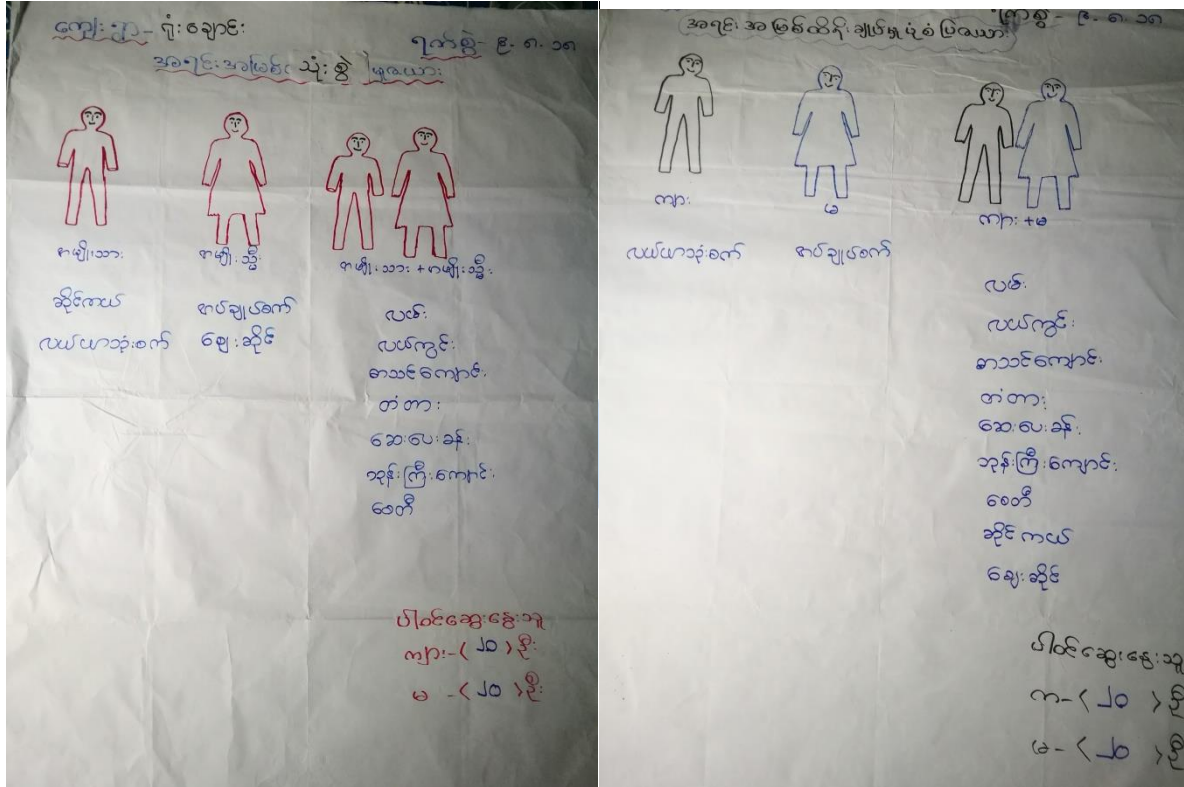 ကျေးရွာ- ရုံးချောင်း
ရက်စွဲ- ၉.၈.၁၈
အရင်းအမြစ် သုံးစွဲ မှုဇယား
အမျိုးသား
အမျိုးသ္မီး
အမျိုးသား + အမျိုးသ္မီး
ဆိုင်ကယ်
အပ်ချုပ်စက်
လမ်း
လယ်ယာသုံးစက်
ဈေးဆိုင်
လယ်ကွင်း
စာသင်ကျောင်း
တံတား
ဆေးပေးခန်း
ဘုန်းကြီးကျောင်း
စေတီ
ပါဝင်ဆွေးနွေးသူ
ကျား-( ၂၀ )ဦး
မ -( ၂၀ )ဦး
၉.၈.၁၈
အရင်းအမြစ်ထိန်းချုပ်မှုပုံစံပြဇယား
ကျား
မ
ကျား + မ
လယ်ယာသုံးစက်
အပ်ချုပ်စက်
လမ်း
လယ်ကွင်း
စာသင်ကျောင်း
တံတား
ဆေးပေးခန်း
ဘုန်းကြီးကျောင်း
စေတီ
ဆိုင်ကယ်
ဈေးဆိုင်
ပါဝင်ဆွေးနွေးသူ
ကျာ-( ၂၀ )ဦ
မ-( ၂၀ )ဦ